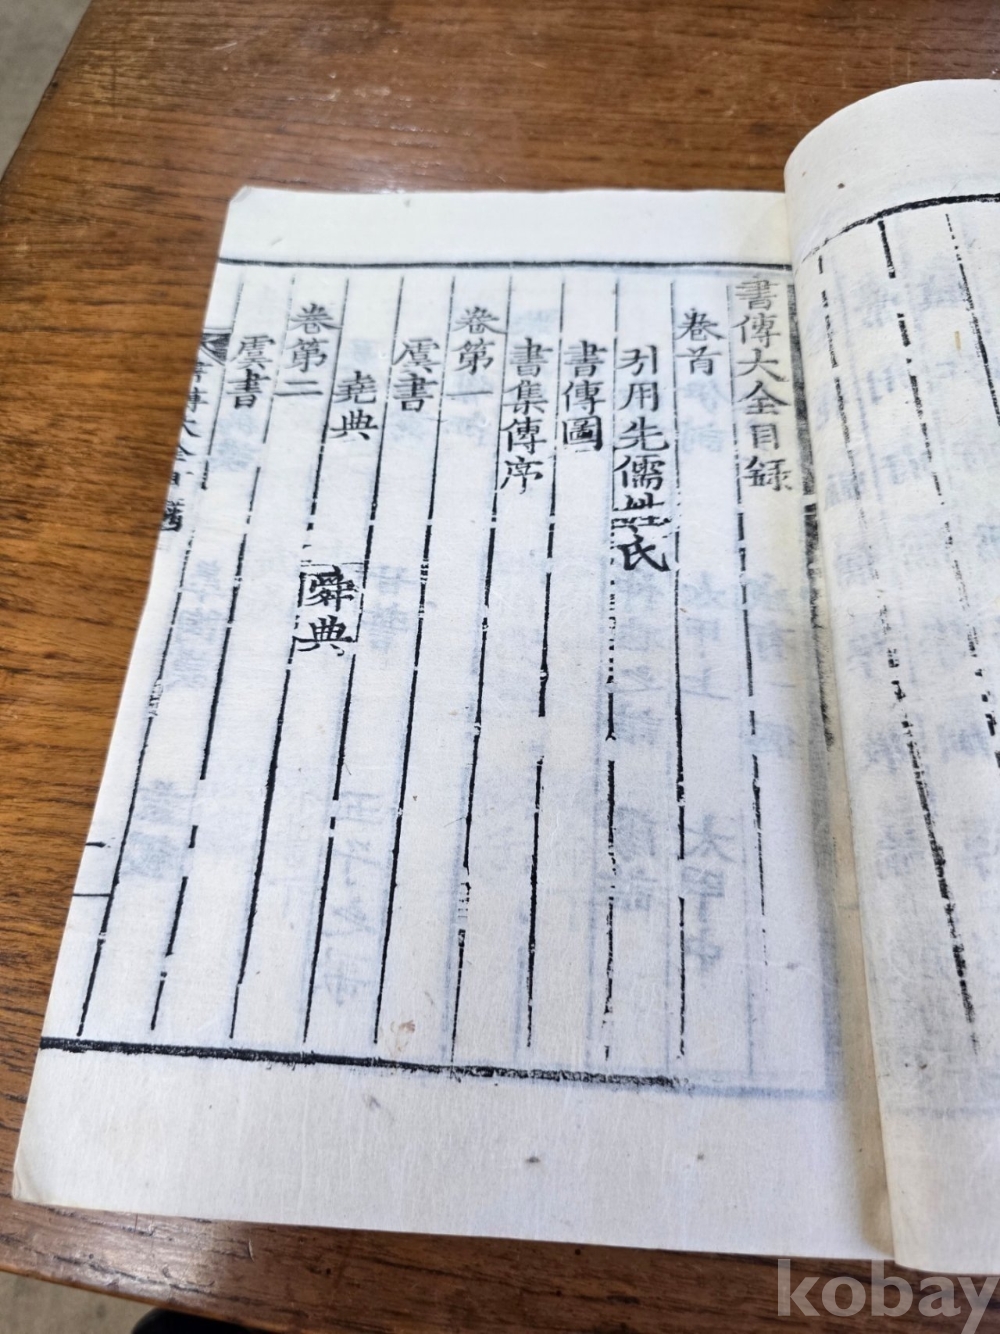 書傳大全目録
卷首
引用先儒姓氏
書傳圖
書集傳序
卷第一
虞書
堯典 舜典
卷第二
虞書
書傳大全
kobay